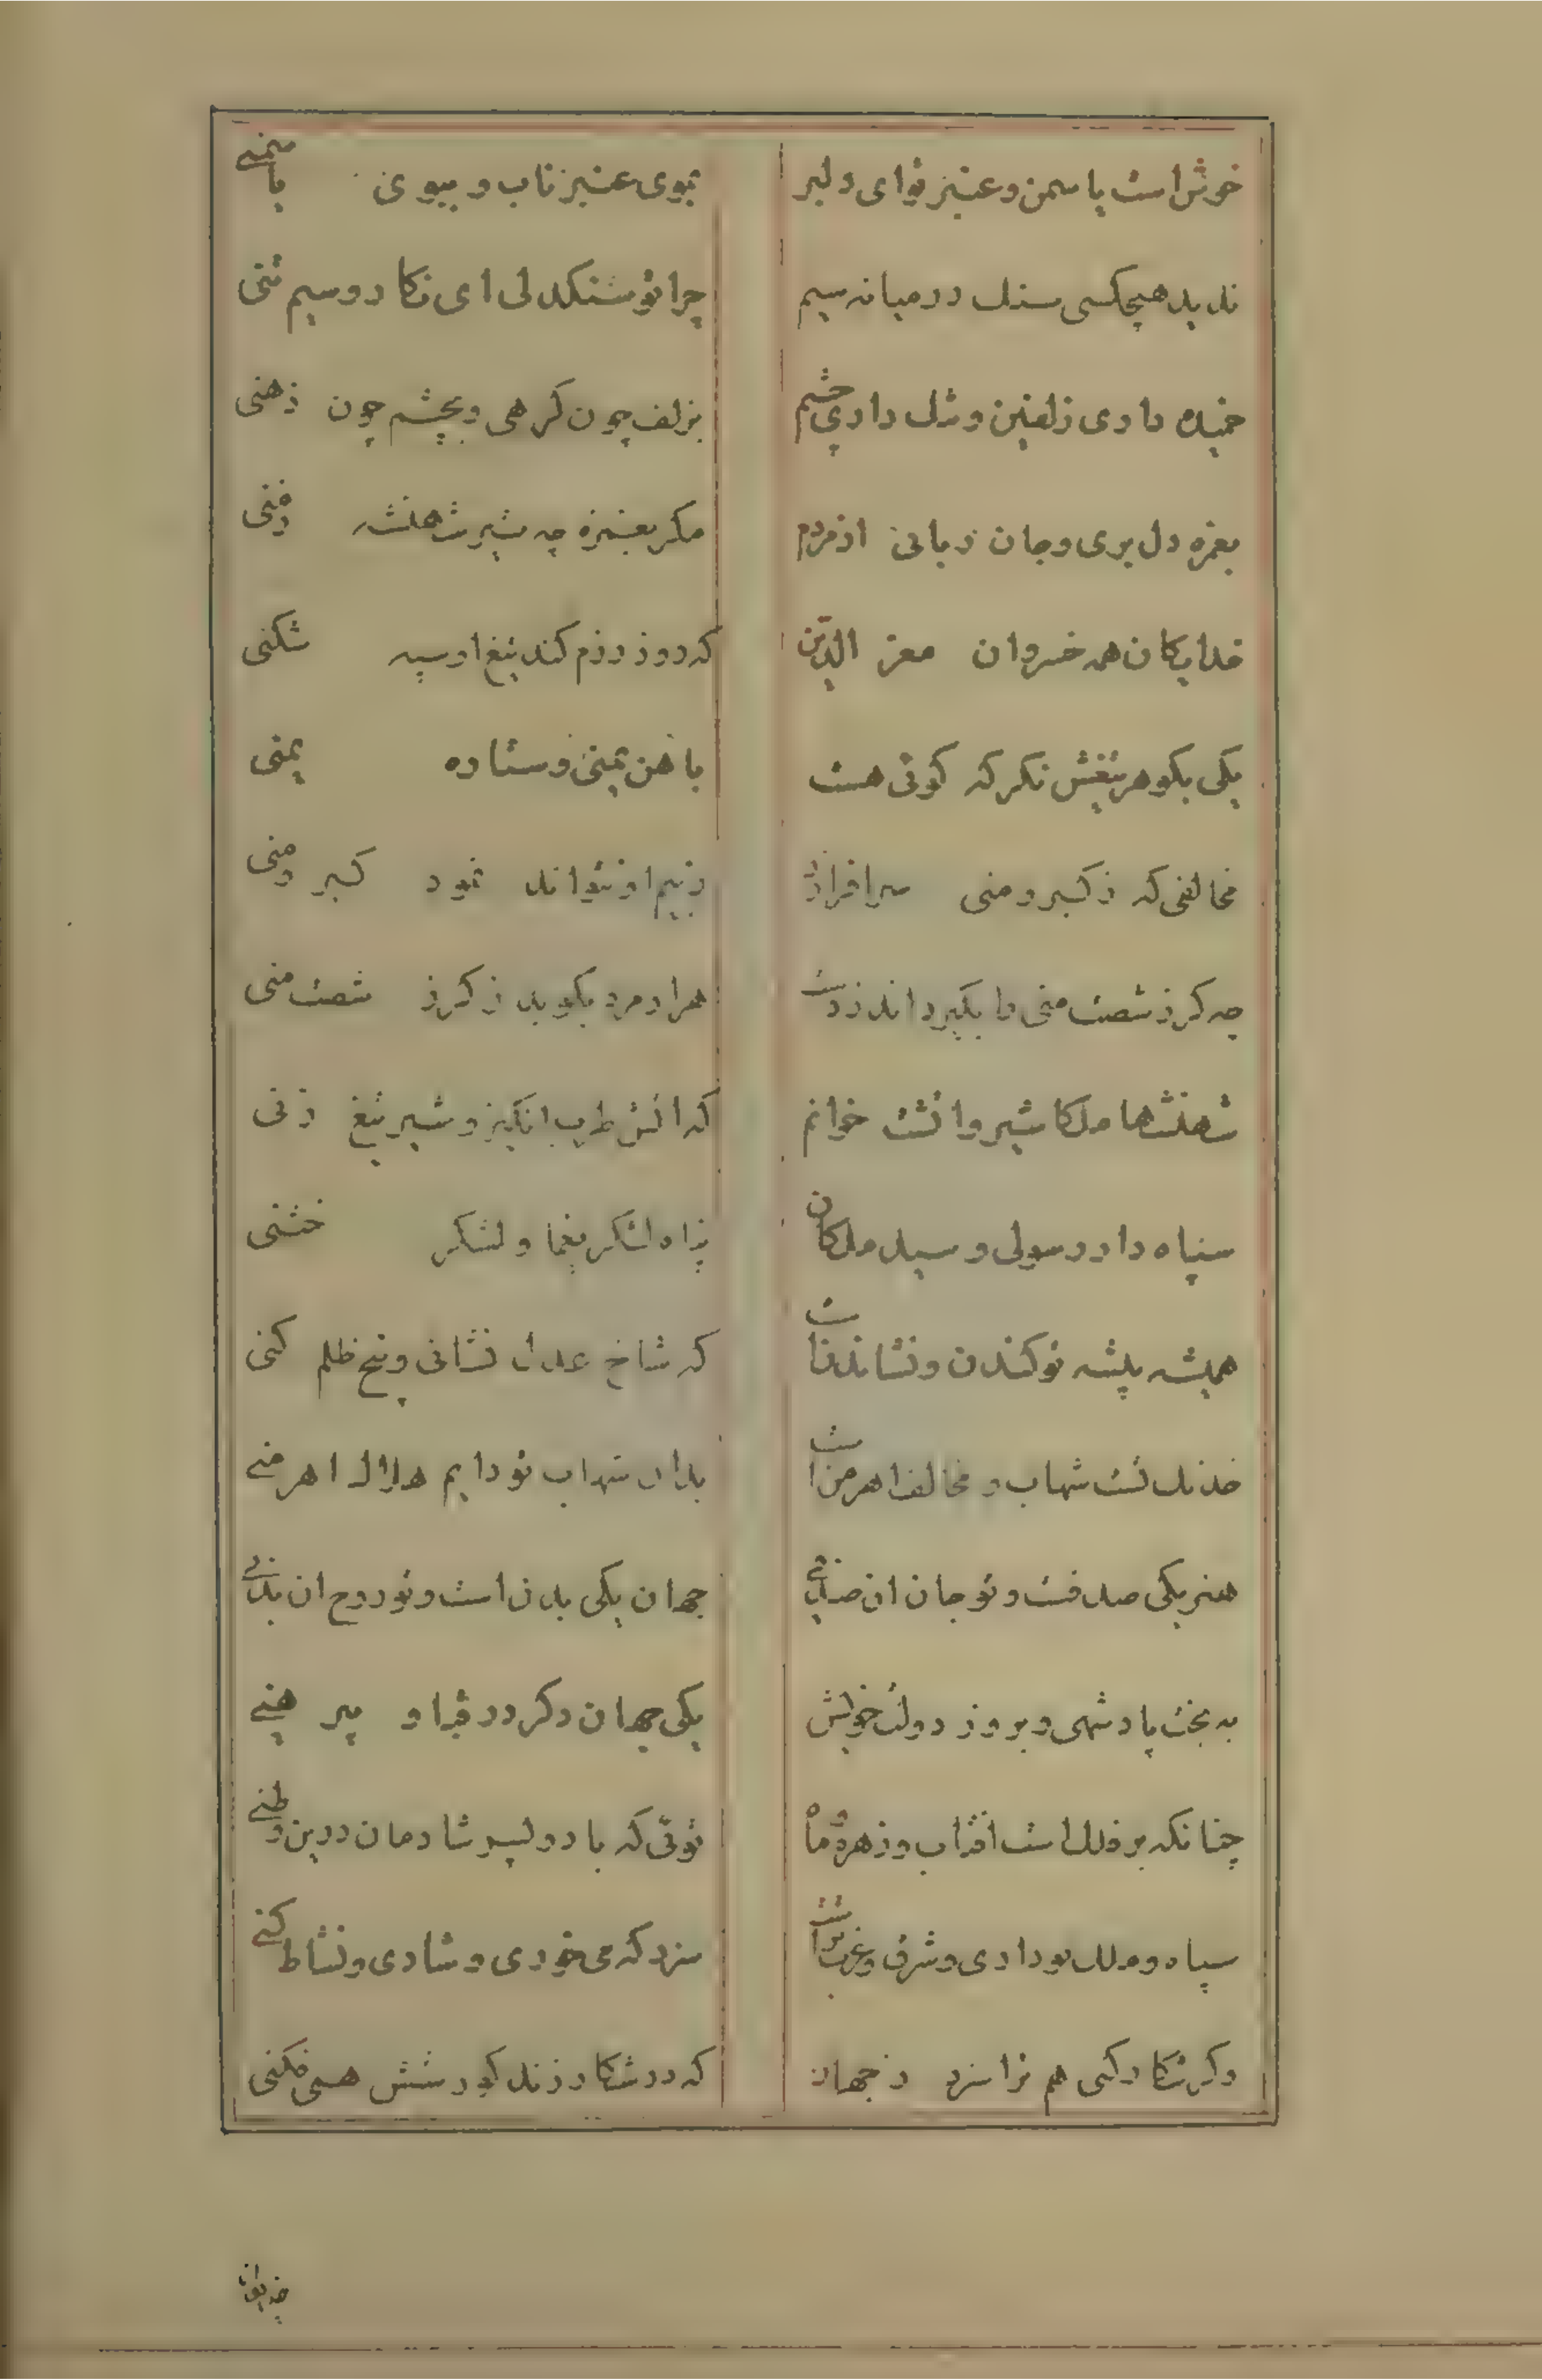 خوش است یاسمن و عنبر تو ای دلبر بموی عنبر ناب و ببوی یاسمنی
ندید هیچکسی سنک در میانه سیم چرا تو سنکدلی ای نکار و سیم تنی
خمیده داری زلفین و تنک داری چشم بزلف چون کرهی و بچشم چون ذهنی
بغمزه دل بری و جان ربائی از مردم مکر بغمزه چه تیر شهنشه زمنی
خدایکان همه خسروان معز الدین که روز رزم کند تیغ او سپه شکنی
یکی بکوهر تیغش نکر که کوئی هست باهن یمنی و ستاره یمنی
مخالفی که ز کبر و منی سرافرازد ز بیم او نتواند نمود کبر و منی
چه کرز شصت منی را بکیرد اندر دست هزار مرد بکوبد ز کرز شصت منی
شهنشها ملکا شیر و اتشت خوانم که اتش طرب انکیز و شیر تیغ زنی
سپاه دار رسولی و سید ملکان پناه لشکر یغما و لشکر ختنی
همیشه پیشه تو کندن و نشاندنست که شاخ عدل نشانی و بیخ ظلم کنی
خدنک تست شهاب و مخالف اهرمنست بدان شهاب تو دایم هلاک اهرمنی
هنر یکی صدفست و تو جان ان صدفی جهان یکی بدن است و تو روح ان بدنی
به بخت پادشهی و بروز دولت خویش یکی جهان دکر در قبا و پیرهنی
چنانکه بر فلک است افتاب و زهره و ماه توئی که با دو پسر شادمان درین وطنی
سپاه و ملک تو داری و شرق و غرب تراست سزد که می خوری و شادی و نشاط کنی
وکر شکار کنی هم ترا سزد ز جهان که در شکار زند کور شش همی فکنی